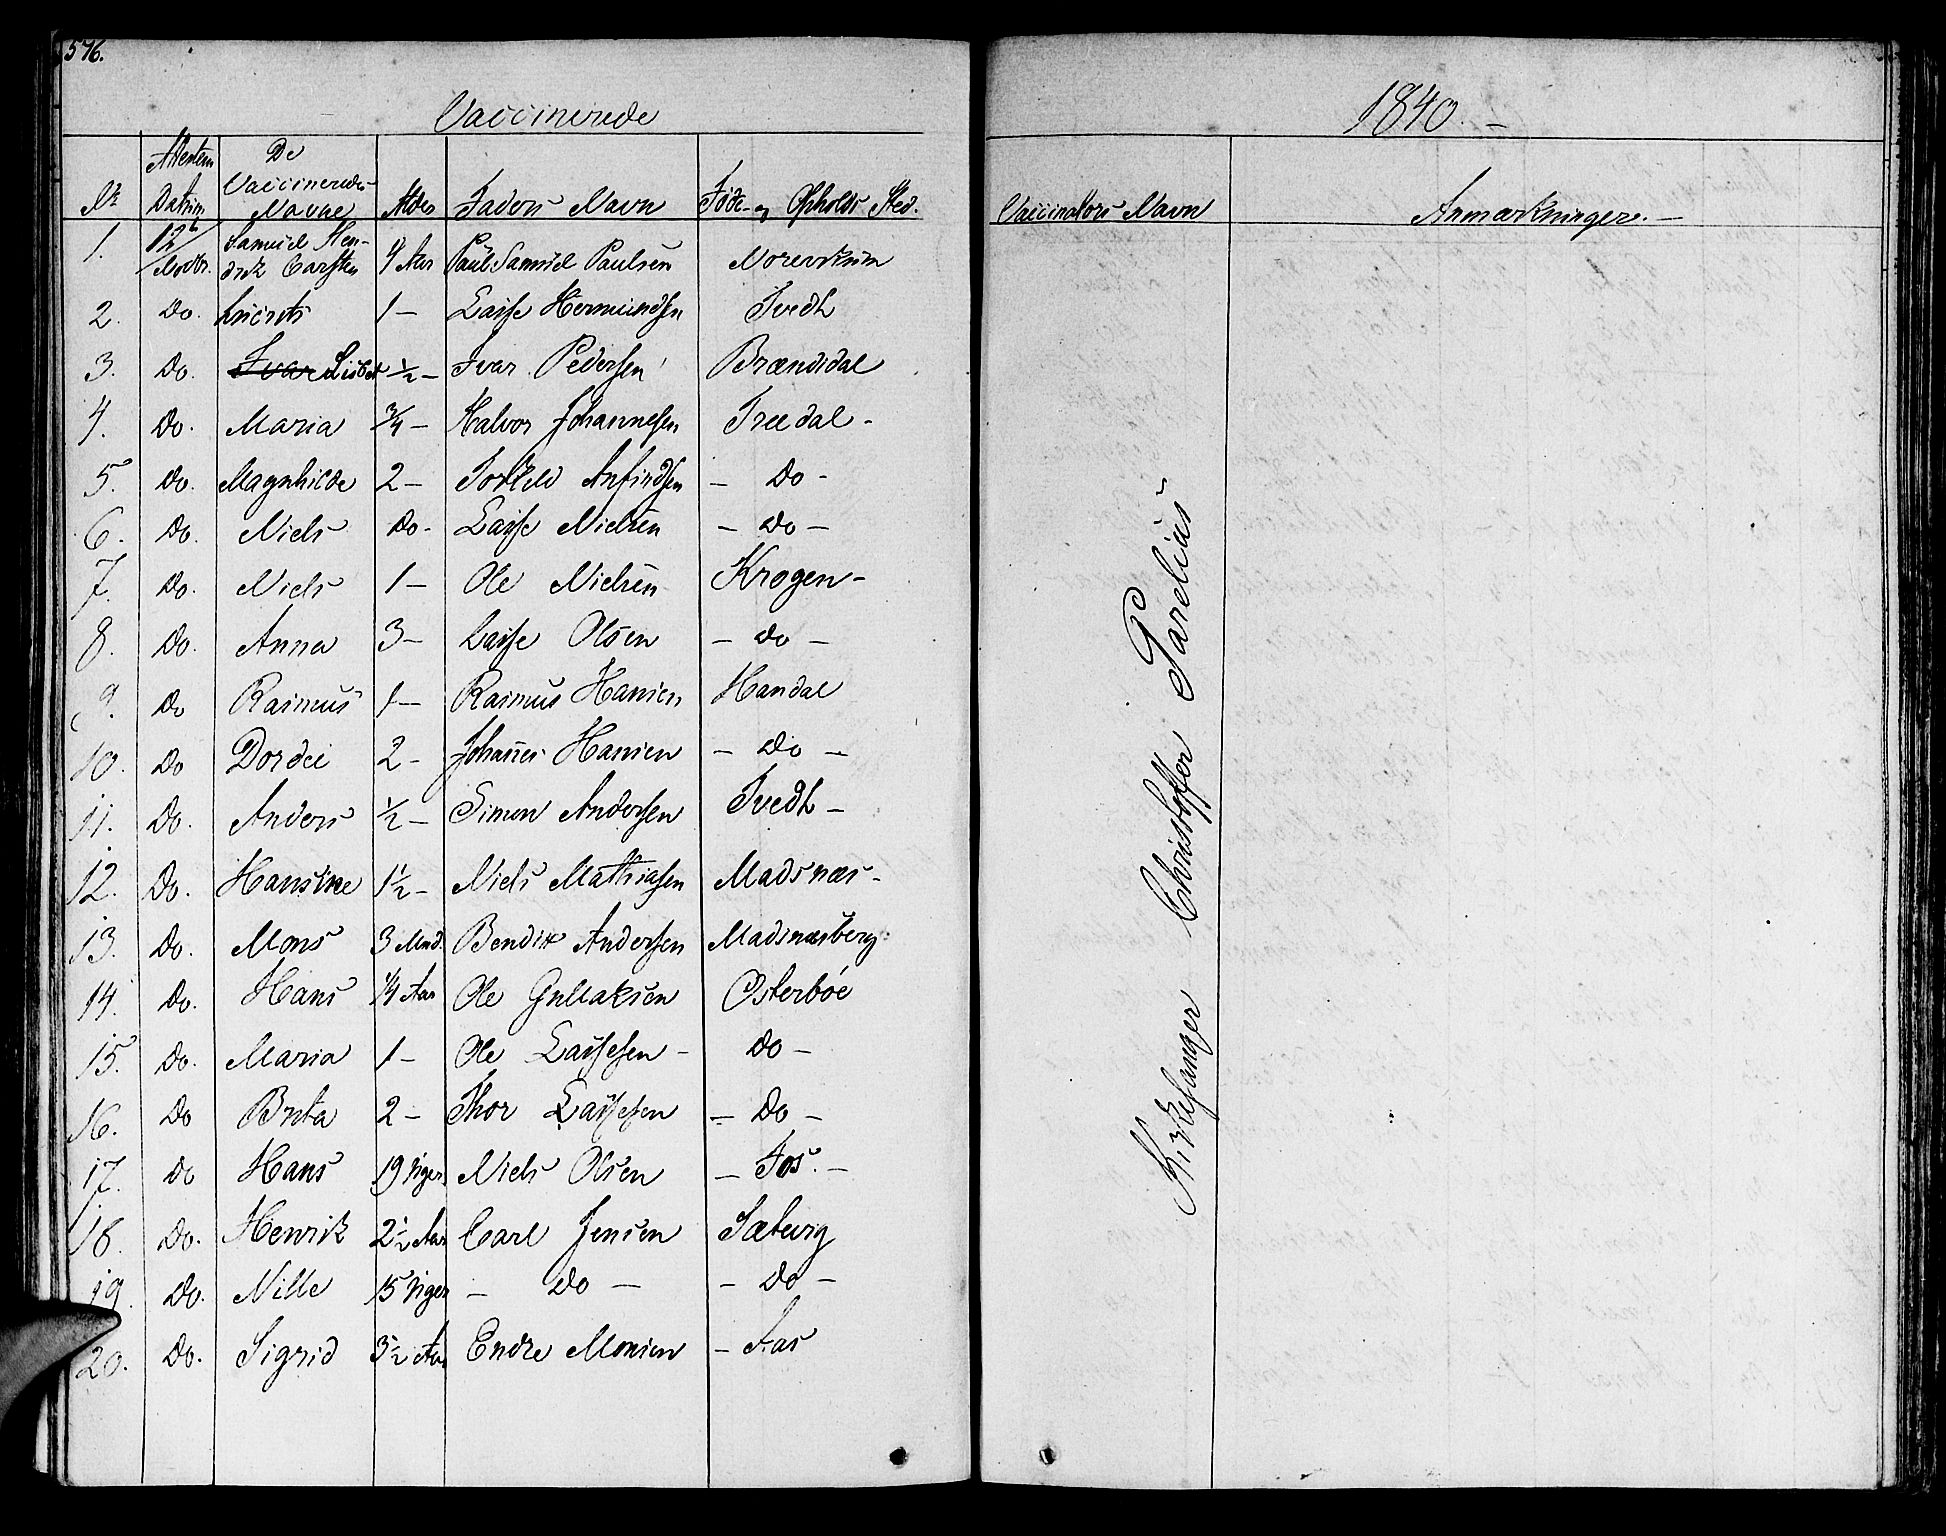 576.
Vaccinerede
Nr Attestens Datum De Vaccineredes Navne Alder Faders Navn Føde- og Opholds Sted.
1. 12te Novbr. Samuel Hendrik Carsten 4 Aar Paul Samuel Paulsen
2. Do. 1- Lasse Hermundsen Tvedt
3. Do. Ivar Lisbet 1/2- Ivar Pedersen Brændidal
4. Do. Maria 3/4- Halvor Johannesen Treedal-
5. Do. Magnhilde 2- Torkeld Anfindsen - Do-
6. Do. Niels Do- Lasse Nielsen - Do-
7. Do. Niels 1- Ole Nielsen Krogen-
8. Do. Anna 3- Lasse Olsen - Do-
9. Do Rasmus 1- Rasmus Hansen Handal
10. Do Dordei 2- Johanes Hansen - Do-
11. Do. Anders 1/2- Simon Andersen Tvedt-
12. Do. Hansine 1 1/2- Niels Mathiasen Madsnæs-
13. Do. Mons 3 Mnd. Bendix Andersen Madsnæsberg
14. Do. Hans 1/4 Aar Ole Gullaksen Østerbøe
15. Do. Maria 1- Ole Lassesen- Do-
16. Do Brita 2- Thor Lassesen - Do-
17. Do Hans 19 Uger Niels Olsen - Fos.-
18. Do. Henrik 2 1/2 Aar Carl Jensen Sætevig
19. Do. Nille 15 Uger - Do- - Do-
20. Do. Sigrid 3 1/2 Aar Endre Monsen - Aas
1840.-
Vaccinators Navn Anmærkninger.-
Kirkesanger Christoffer Parelius